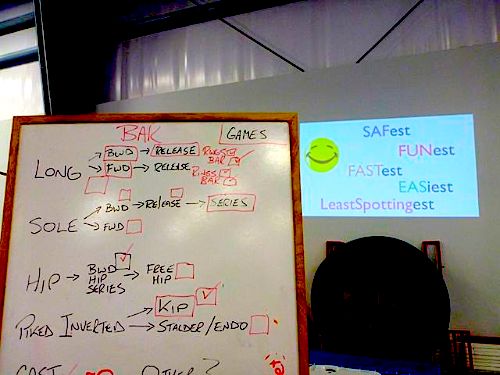 BAK
GAMES
LONG → BWD → RELEASE RINGS BAR
→ FWD → RELEASE RINGS BAR
SOLE → BWD → RELEASE → SERIES
→ FWD
HIP → BWD HIP SERIES → FREE HIP
PIKED INVERTED → KIP
→ STALDER/ENDO
CAST
OTHER?
SAFest
FUNest
FASTest
EASiest
LeastSpottingest